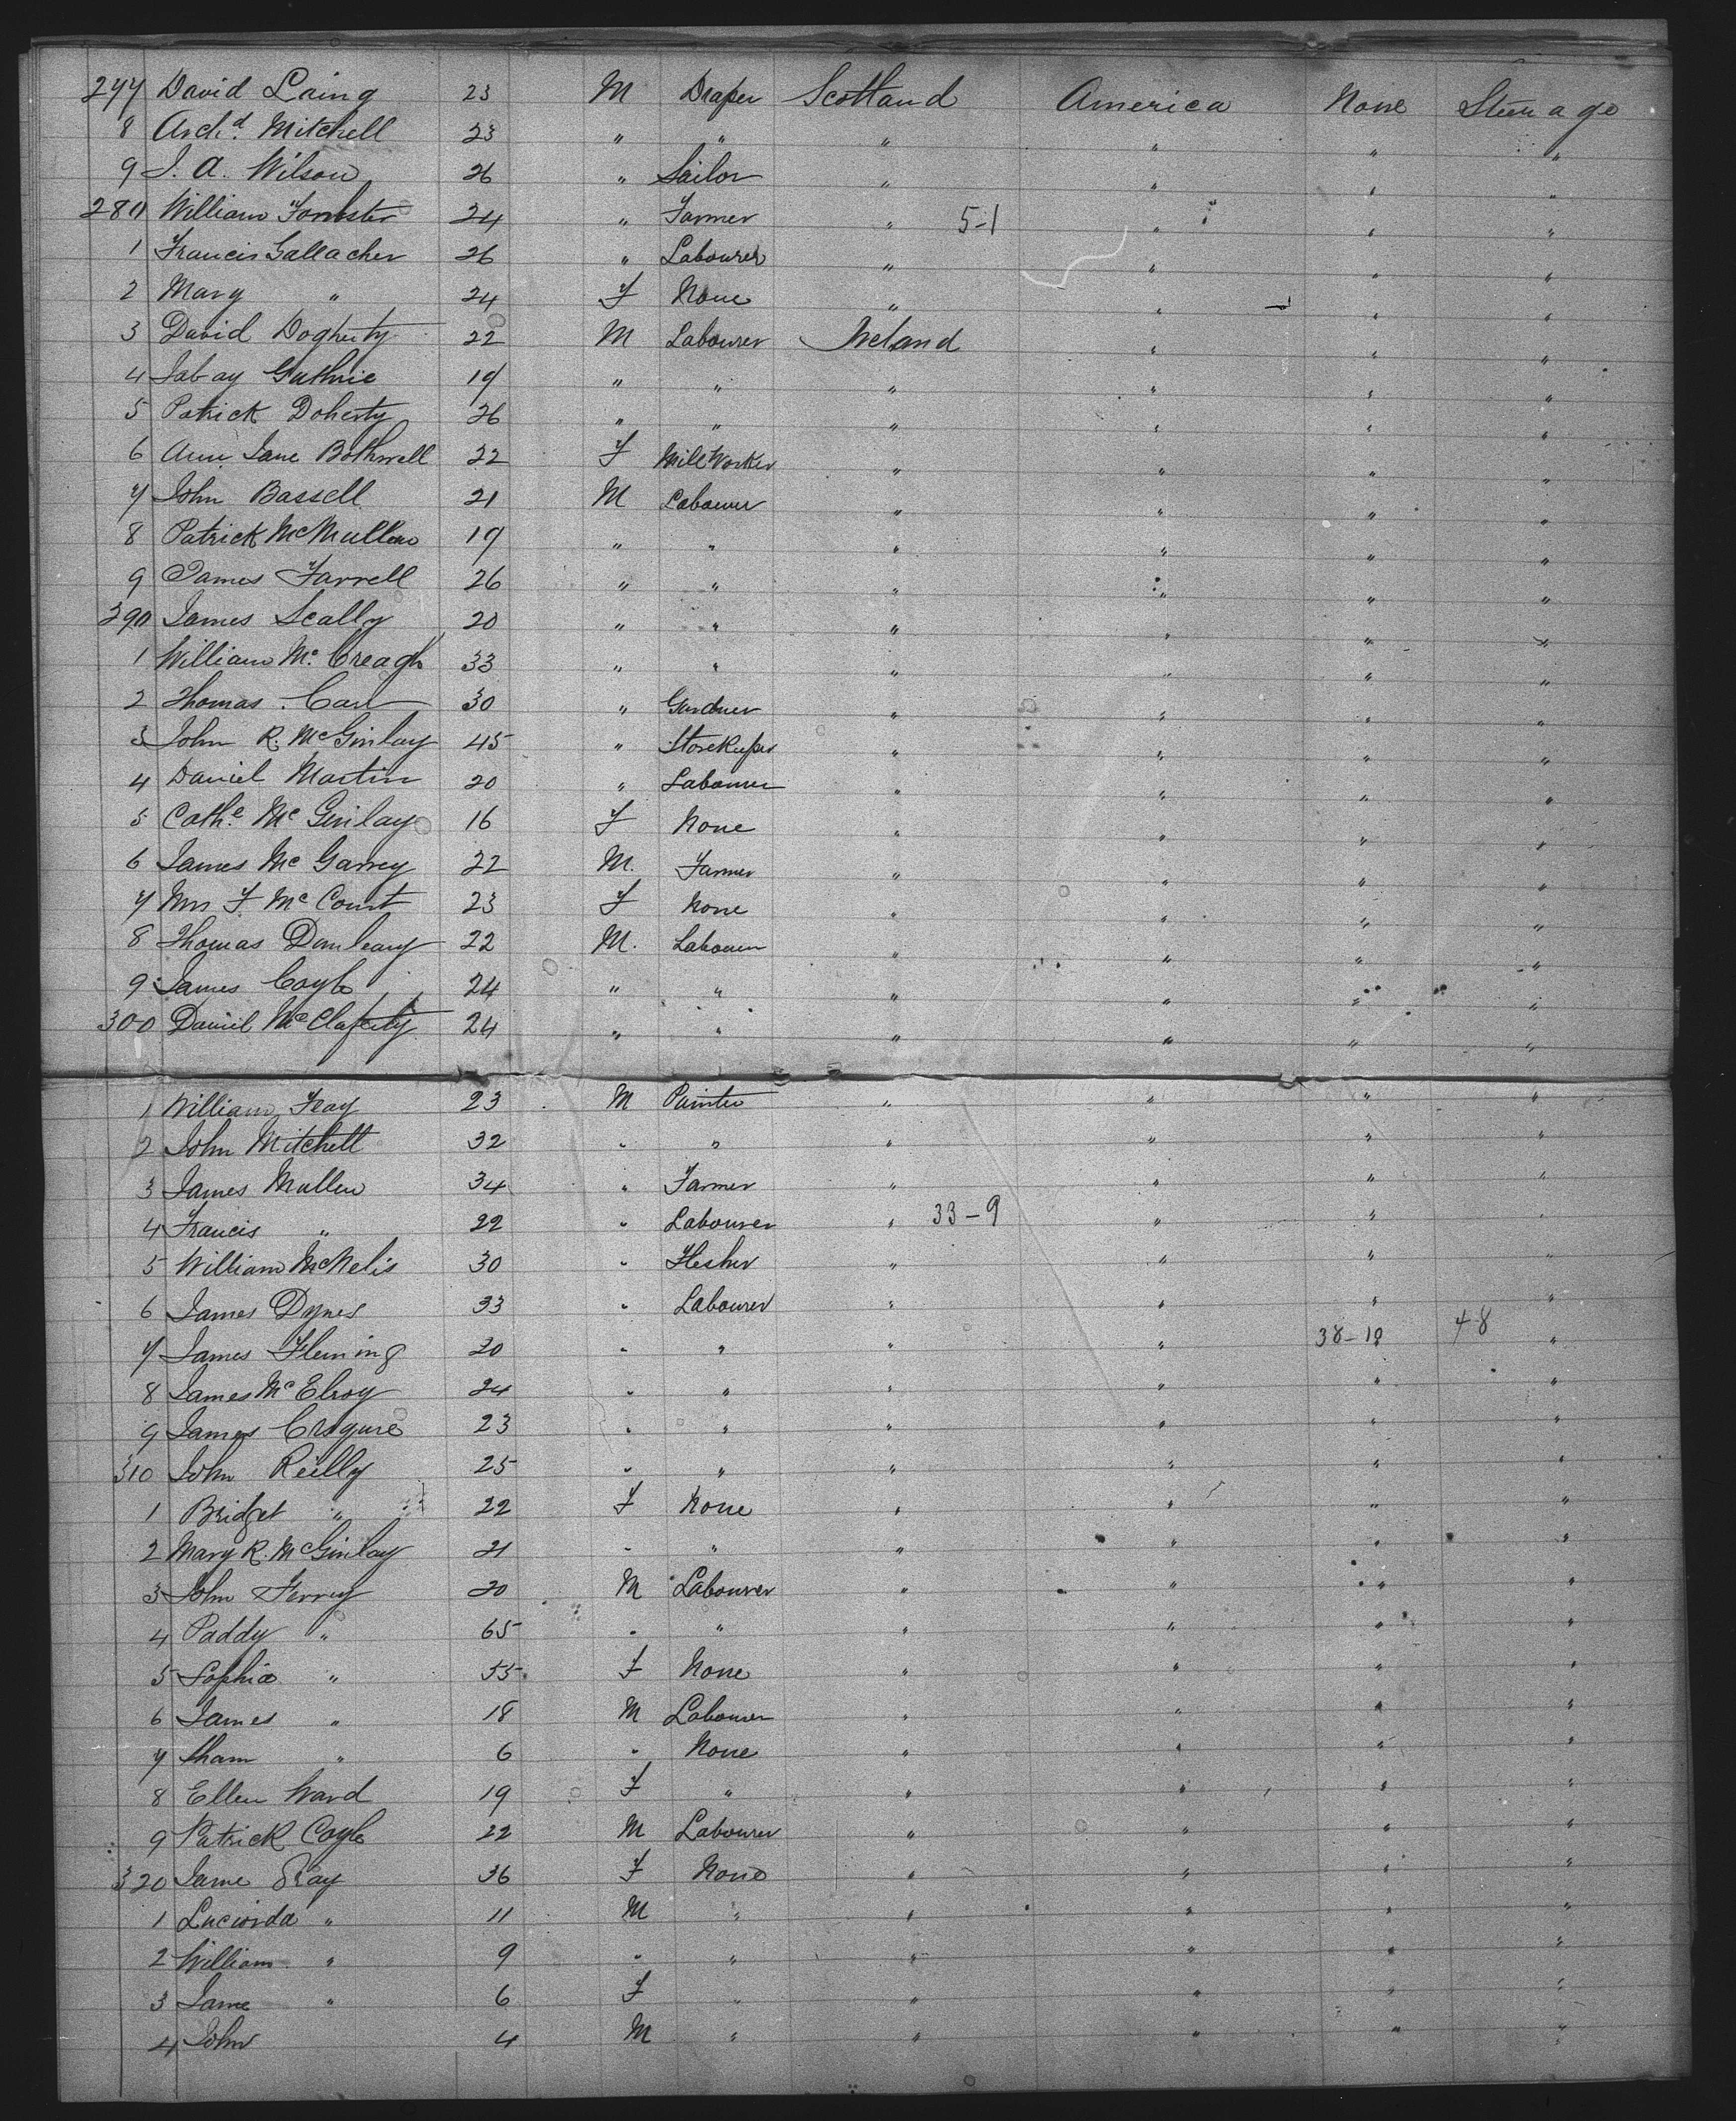 277 David Laing 23 M Draper Scotland America None Steerage
8 Archd. Mitchell 23 " " " " " "
9 J. A. Wilson 26 " Sailor " " " "
280 William Forrester 24 " Farmer " 5-1 " " "
1 Francis Gallacher 26 " Labourer " " " "
2 Mary " 24 F None " " " "
3 David Dogherty 22 M Labourer Ireland " " "
4 Guthrie 19 " " " " " "
5 Patrick Doherty 26 " " " " " "
6 Ann Jane Bothwell 22 F Mill Worker " " " "
7 John Bassell 21 M Labourer " " " "
8 Patrick McMullen 19 " " " " " "
9 James Farrell 26 " " " " " "
290 James Scally 20 " " " " " "
1 William Mc. Creagh 33 " " " " " "
2 Thomas Carr 30 " Gardner " " " "
3 John R. McGinlay 45 " Storekeeper " " " "
4 Daniel Martin 20 " Labourer " " " "
5 Cathe. Mc Ginlay 16 F None " " " "
6 James Mc Garvey 22 M. Farmer " " " "
7 Mrs F Mc Court 23 F None " " " "
8 Thomas Dunleavy 22 M. Labourer " " " "
9 James Coyle 24 " " " " " "
300 Daniel McClaferty 24 " " " " " "
1 William Fray 23 M Painter " " " "
2 John Mitchell 32 " " " " " "
3 James Mullen 34 " Farmer " " " "
4 Francis " 22 " Labourer " 33-9 " " "
5 William McNelis 30 " Flesher " " " "
6 James Dynes 33 " Labourer " " " "
7 James Fleming 20 " " " " 38-10 48 "
8 James McElroy 24 " " " " " "
9 James 23 " " " " " "
310 John Reilly 25 " " " " " "
1 Bridget " 22 F None " " " "
2 Mary R. McGinlay 21 " " " " " "
3 John Ferry 20 M Labourer " " " "
4 Paddy " 65 " " " " " "
5 Sophia " 55 F None " " " "
6 James " 18 M Labourer " " " "
7 " 6 " None " " " "
8 Ellen Ward 19 F " " " " "
9 Patrick Coyle 22 M Labourer " " " "
320 Jane Ray 36 F None " " " "
1 Lucinda " 11 M " " " " "
2 William " 9 " " " " " "
3 Jane " 6 F " " " " "
4 John 4 M " " " " "